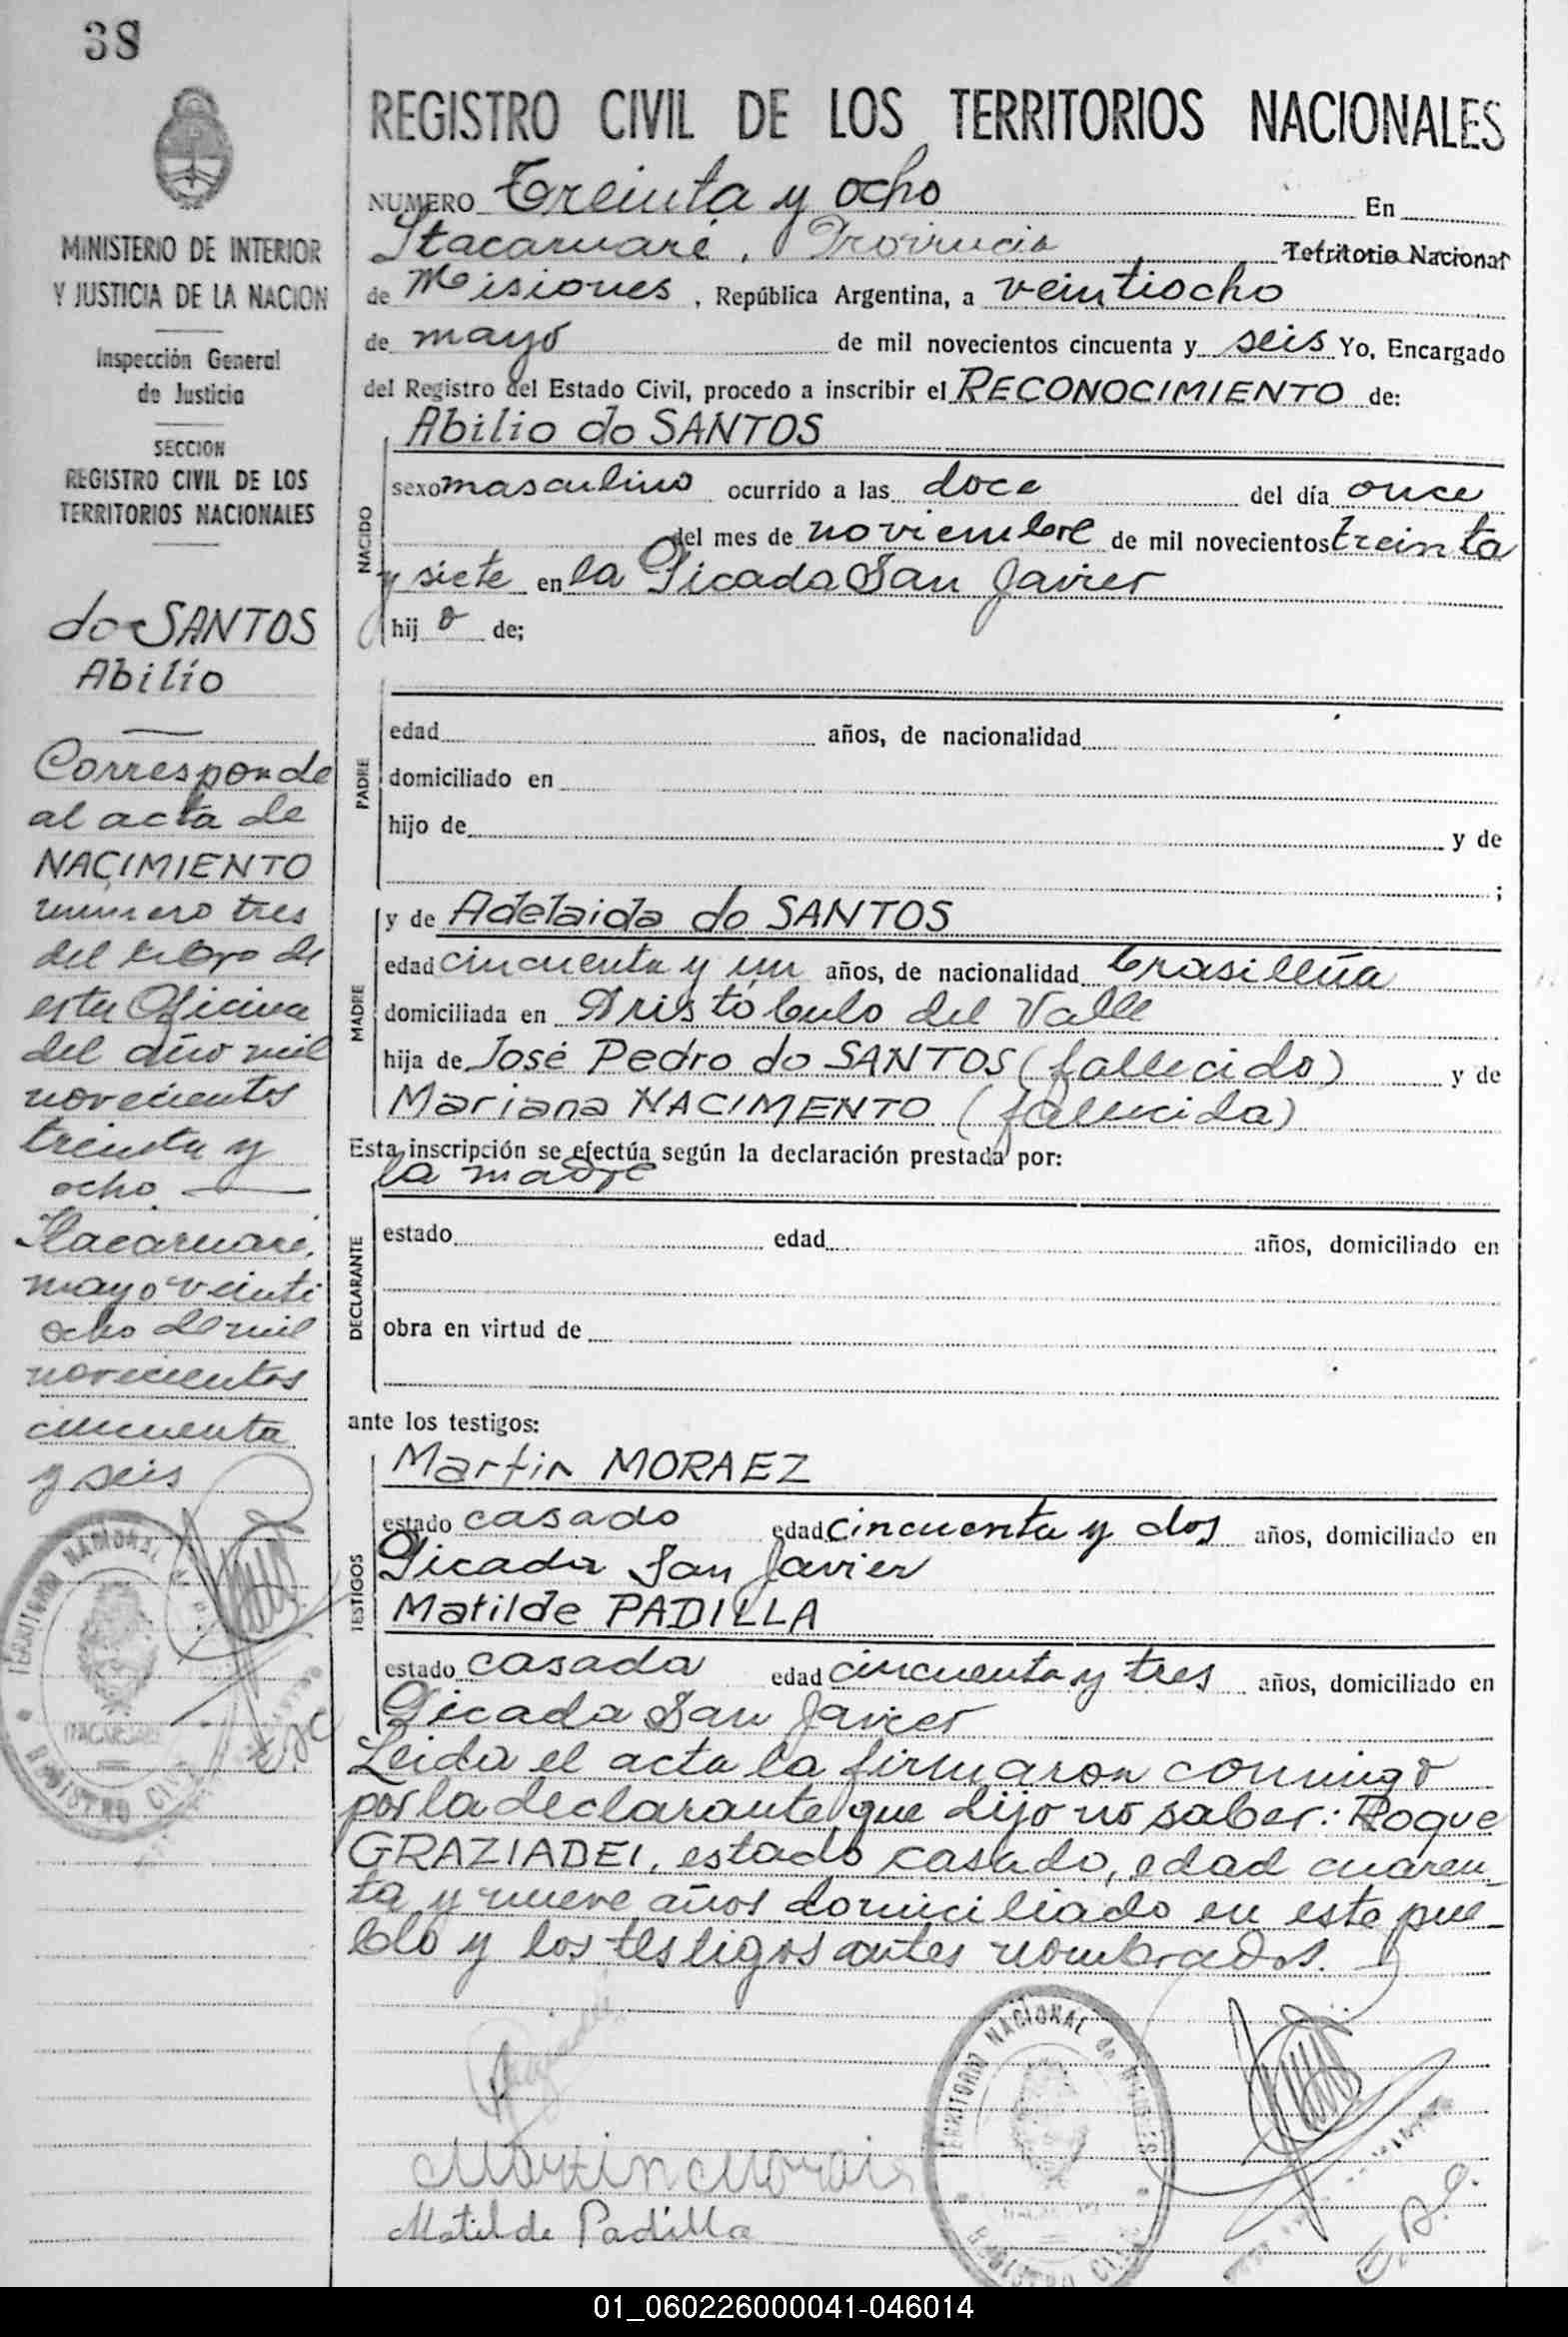 38
MINISTERIO DE INTERIOR
Y JUSTICIA DE LA NACION
Inspección General
de Justicia
SECCION
REGISTRO CIVIL DE LOS
TERRITORIOS NACIONALES
do SANTOS
Abilio
Corresponde
al acta de
NACIMIENTO
numero tres
del libro de
esta Oficina
del año mil
novecientos
treinta y
ocho
Itacaruaré,
mayo veinti
ocho de mil
novecientos
cincuenta
y seis
REGISTRO CIVIL DE LOS TERRITORIOS NACIONALES
NUMERO Treinta y ocho En
Itacaruaré, Provincia Territorio Nacional
de Misiones, República Argentina, a veintiocho
de mayo de mil novecientos cincuenta y seis Yo, Encargado
del Registro del Estado Civil, procedo a inscribir el RECONOCIMIENTO de:
Abilio do SANTOS
NACIDO
sexo masculino ocurrido a las doce del día once
del mes de noviembre de mil novecientos treinta
y siete en la Picada San Javier
hij o de;
PADRE
edad años, de nacionalidad
domiciliado en
hijo de y de
;
MADRE
y de Adelaida do SANTOS
edad cincuenta y un años, de nacionalidad brasileña
domiciliada en Aristóbulo del Valle
hija de José Pedro do SANTOS (fallecido) y de
Mariana NACIMENTO (fallecida)
Esta inscripción se efectúa según la declaración prestada por:
la madre
DECLARANTE
estado edad años, domiciliado en
obra en virtud de
ante los testigos:
TESTIGOS
Martin MORAEZ
estado casado edad cincuenta y dos años, domiciliado en
Picada San Javier
Matilde PADILLA
estado casada edad cincuenta y tres años, domiciliado en
Picada San Javier
Leida el acta la firmaron conmigo
por la declarante que dijo no saber: Roque
GRAZIADEI, estado casado, edad cuaren_
ta y nueve años domiciliado en este pue_
blo y los testigos antes nombrados.
Martin Morais
Matilde Padilla
TERRITORIO NACIONAL de MISIONES
REGISTRO CIVIL
TERRITORIO NACIONAL
ITACARUARE
REGISTRO CIVIL
01_060226000041-046014